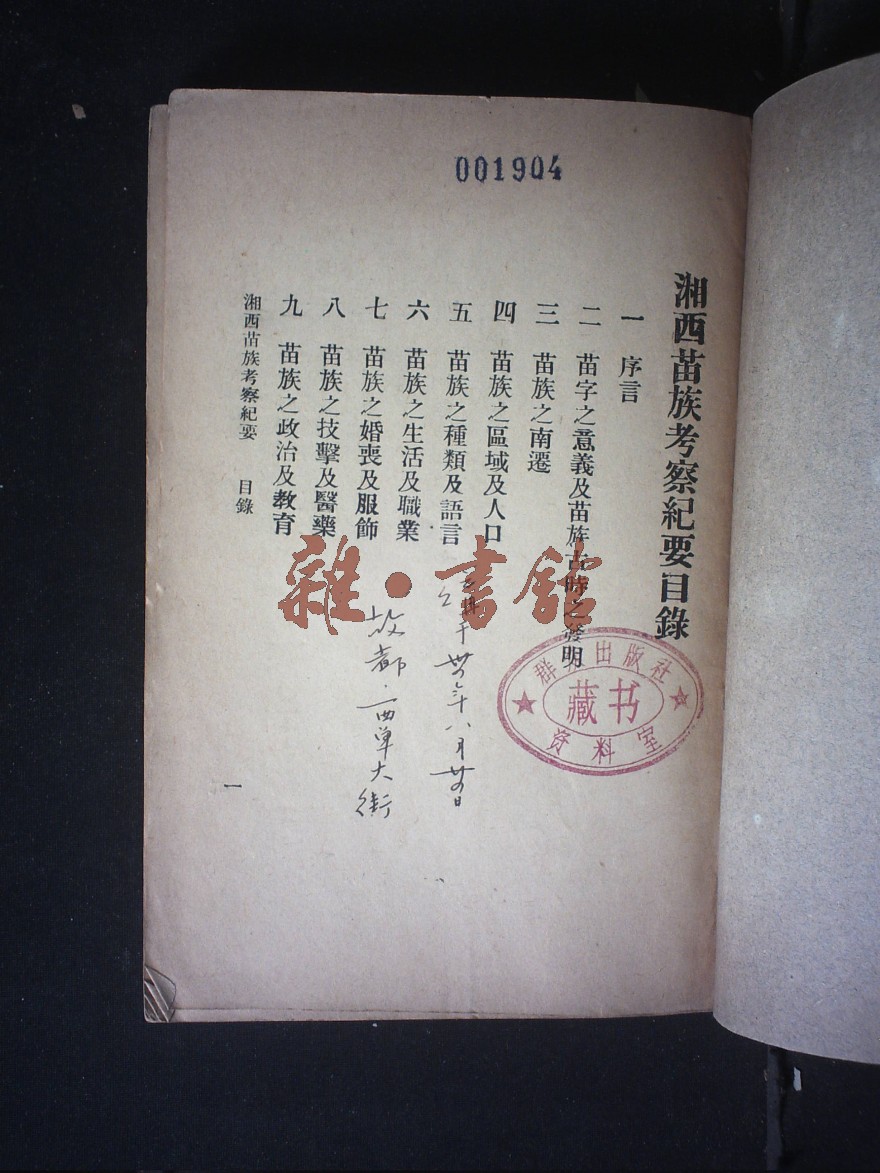 001904
湘西苗族考察紀要目錄
一 序言
二 苗字之意義及苗族古時之發明
三 苗族之南遷
四 苗族之區域及人口
五 苗族之種類及語言
六 苗族之生活及職業
七 苗族之婚喪及服飾
八 苗族之技擊及醫藥
九 苗族之政治及教育
湘西苗族考察紀要 目錄
一
于卅四年八月廿四日
故都·西單大街
雜·書館
群众出版社
藏书
资料室